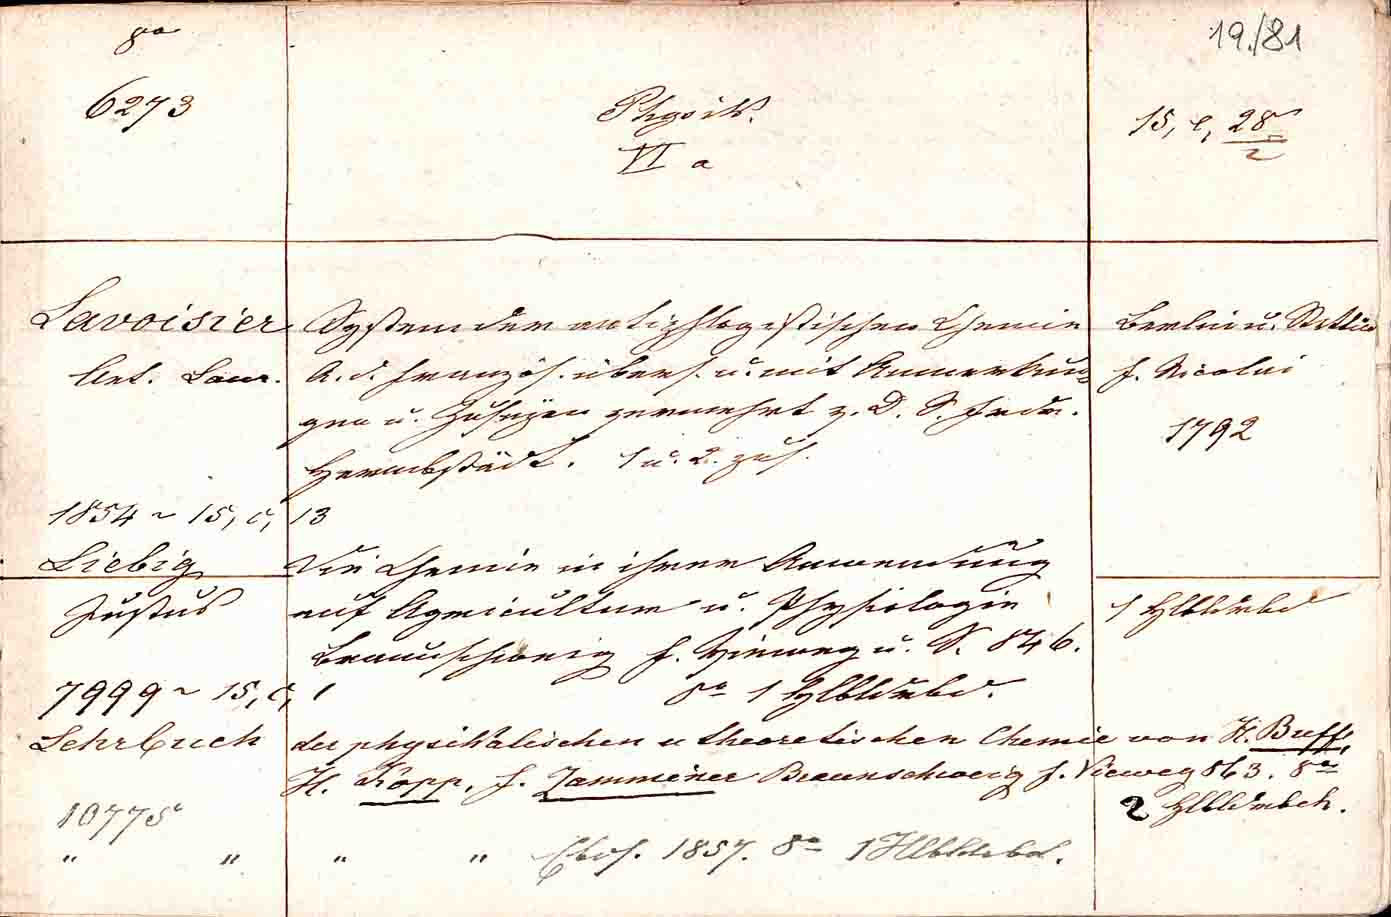 8°
19./81
6273
Physik.
15, c, 28/2
VI a
Lavoisier System der antiphlogistischen Chemie Berlin u. Stettin
Ant. Laur. A. d. Französ. übers. u. mit Anmerkun- f. Nicolai
gen u. Zusäzen vermehrt v. D. S. Frdr.
1792
Hermbstädt. 1 u. 2. zus.
1854 ~ 15, c, 13
Liebig Die Chemie in ihrer Anwendung
Justus auf Agricultur u. Physiologie 1 Hlbldrbd
Braunschweig f. Vieweg u. S. 846.
7999 ~ 15, c, 1 8° 1 Hlbldrbd.
Lehrbuch der physikalischen u theoretischen Chemie von H. Buff,
H. Kopp, f. Zamminer Braunschweig f. Vieweg 863. 8°
2 Hlbldrbde.
10775
" " " " Ebds. 1857. 8° 1 Hlbldrbd.